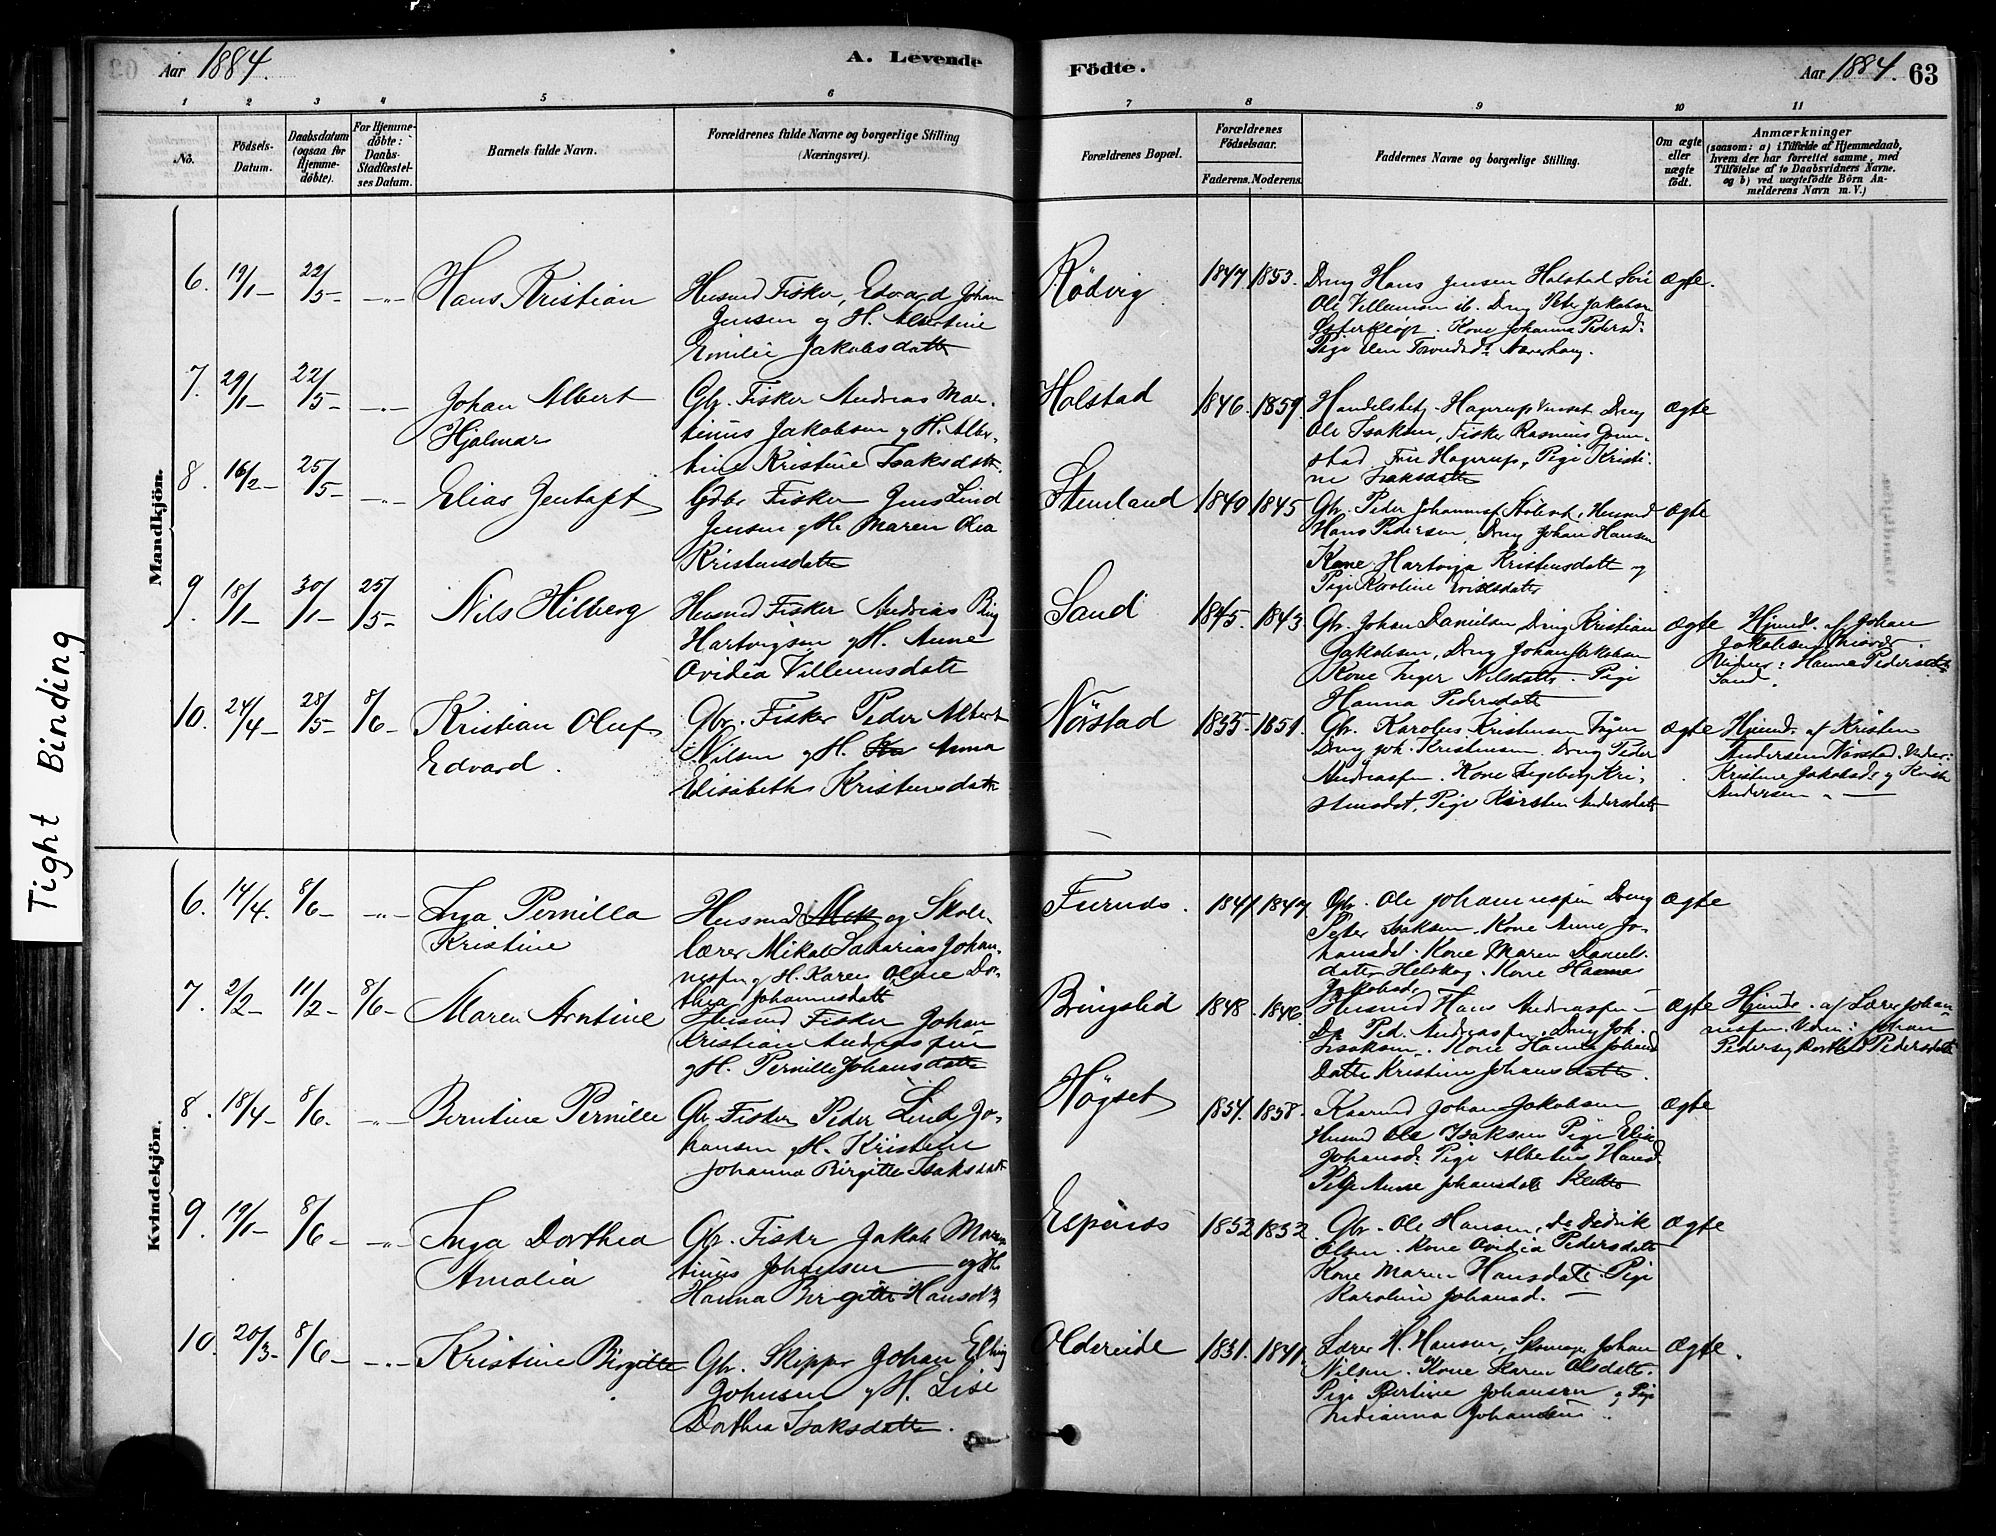 Aar 1884.
A. Levende
Födte.
Aar 1884. 63
1 2 3 4 5 6 7 8 9 10 11
No.
Födsels-Datum.
Daabsdatum (ogsaa for Hjemme-döbte).
For Hjemme-döbte: Daabs-Stadfæstel-ses Datum.
Barnets fulde Navn.
Forældrenes fulde Navne og borgerlige Stilling
(Næringsvei).
Forældrenes Bopæl.
Forældrenes Födselsaar.
Faderens. Moderens.
Faddernes Navne og borgerlige Stilling.
Om ægte eller uægte födt.
Anmærkninger
(saasom: a) i Tilfælde af Hjemmedaab,
hvem der har forrettet samme, med
Tilföielse af to Daabsvidners Navne.
og b) ved uægtefödte Börn An-
melderens Navn m. V.)
Tight Binding
Mandkjön.
6. 19/1 22/5 Hans Kristian
Husmd Fisker, Edvard Johan
Jensen og H. Albertine
Emilie Jakobsdatt
Rödvig. 1847 1853.
Dreng Hans Jensen Halstad
Ole Villumsen ib. Dreng Peter Jakobsen
Kone Johanna Pedersd.
Pige
Ægte.
7. 29/1 22/5 Johan Albert
Hjalmar
Gbr. Fisker Andreas Mar-
tinus Jakobsen og H. Alber-
tine Kristine Isaksdatt.
Halstad 1846. 1859.
Hagerup Dreng
Ole Isaksen, Fisker Rasmus
stad. Fru Hagerup, Pige Kristi-
ne Isaksdatt
Ægte
8. 16/2 25/5 Elias Jentoft
Gbr Fisker Jens Lind
Jensen og H. Maren Olea
Kristensdatt
Stenland 1849 1845
Gbr. Peder Johannes Husmd
Hans Pedersen, Dreng Johan Hansen
Kone Hartviga Kristensdatt og
Pige Karoline
Ægte
9. 18/1 30/1 25/5 Nils Hilberg
Husmd Fisker Andreas Bing
Hartvigsen og H. Anne
Ovidia Villumsdatt
Sand 1845. 1843
Gbr. Johan Danielsen, Dreng Kristian
Jakobsen, Dreng Johan Jakobsen
Kone Inger Nilsdatt. Pige
Hanna Pedersdatt
Ægte
Hjemd. af Johan
Jakobsen
Vidner: Hanna Pedersdatt
Sand.
10. 24/4 28/5 8/6 Kristian Oluf
Edvard.
Gbr. Fisker Peder Albert
Nilsen og H. Anna
Elisabeth Kristensdatt
Nörstad 1855. 1851.
Gbr. Karolus Kristensen
Dreng Joh. Kristensen. Dreng Peder
Andreassen. Kone Ingeborg Kri-
stensdat, Pige Kirsten Andersdatt
Ægte
Hjemd. af Kristen
Andersen Nörstad. Vidner:
Kristine Jakobsd. og
Andersen
Kvindekjön.
6. 14/4. 8/6 Inga Pernilla
Kristine
Husmd og Skole-
lærer Mikal Sakarias Johan-
nessen og H. Karen Oline Do-
thea Johannesdatt
Furnes. 1841 1847
Gbr. Ole Johannessen Dreng
Peter Isaksen. Kone Anne Jo-
hansdt. Kone Maren Daniels-
datter Helskog. Kone Hanna
Jakobsd.
Ægte
7. 2/2 11/2 8/6 Maren Arntine
Husmd Fisker Johan
Kristian Andreassen
og H. Pernille Johansdatt
Bringslid 1848. 1846.
Husmd Hans Andreassen
Do Ped. Andreassen. Dreng Joh.
Isaksen. Kone Hanna Johans
Datt Kristine Johansdatt.
Ægte
Hjemd. af Lærer Johan-
nessen. Vidn: Johan
Peders og Dorthea Pedersdatt
8. 18/4 8/6. Berntine Pernille
Gbr Fisker Peder Lind Jo-
hansen og H. Kristine
Johanna Birgitte Isaksdatt
Högset 1854. 1858.
Johan Jakobsen
Husmd Ole Isaksen Pige Elise
Johansd. Pige Albertine Hansd.
Pige Anne Johansdatt
Ægte
9. 19/1 8/6 Inga Dorthea
Amalia
Gbr. Fisker Jakob Mar-
tinus Johansen og H.
Hanna Birgitte Hansdt
Espenes 1852 1852.
Gbr. Ole Hansen, Do Didrik
Olsen. Kone Ovidia Pedersdatt
Kone Maren Hansdatt. Pige
Karoline Johansd.
Ægte
10. 20/3 8/6 Kristine Birgitte
Gbr. Skipper Johan Elling
Johnsen og H. Lise
Dorthea Isaksdatt.
Oldereide 1831. 1841.
Lærer H. Hansen, Johan
Nilsen. Kone Karen Olsdatt.
Pige Bertine Johansen og Pige
Indianna Johansen.
Ægte.